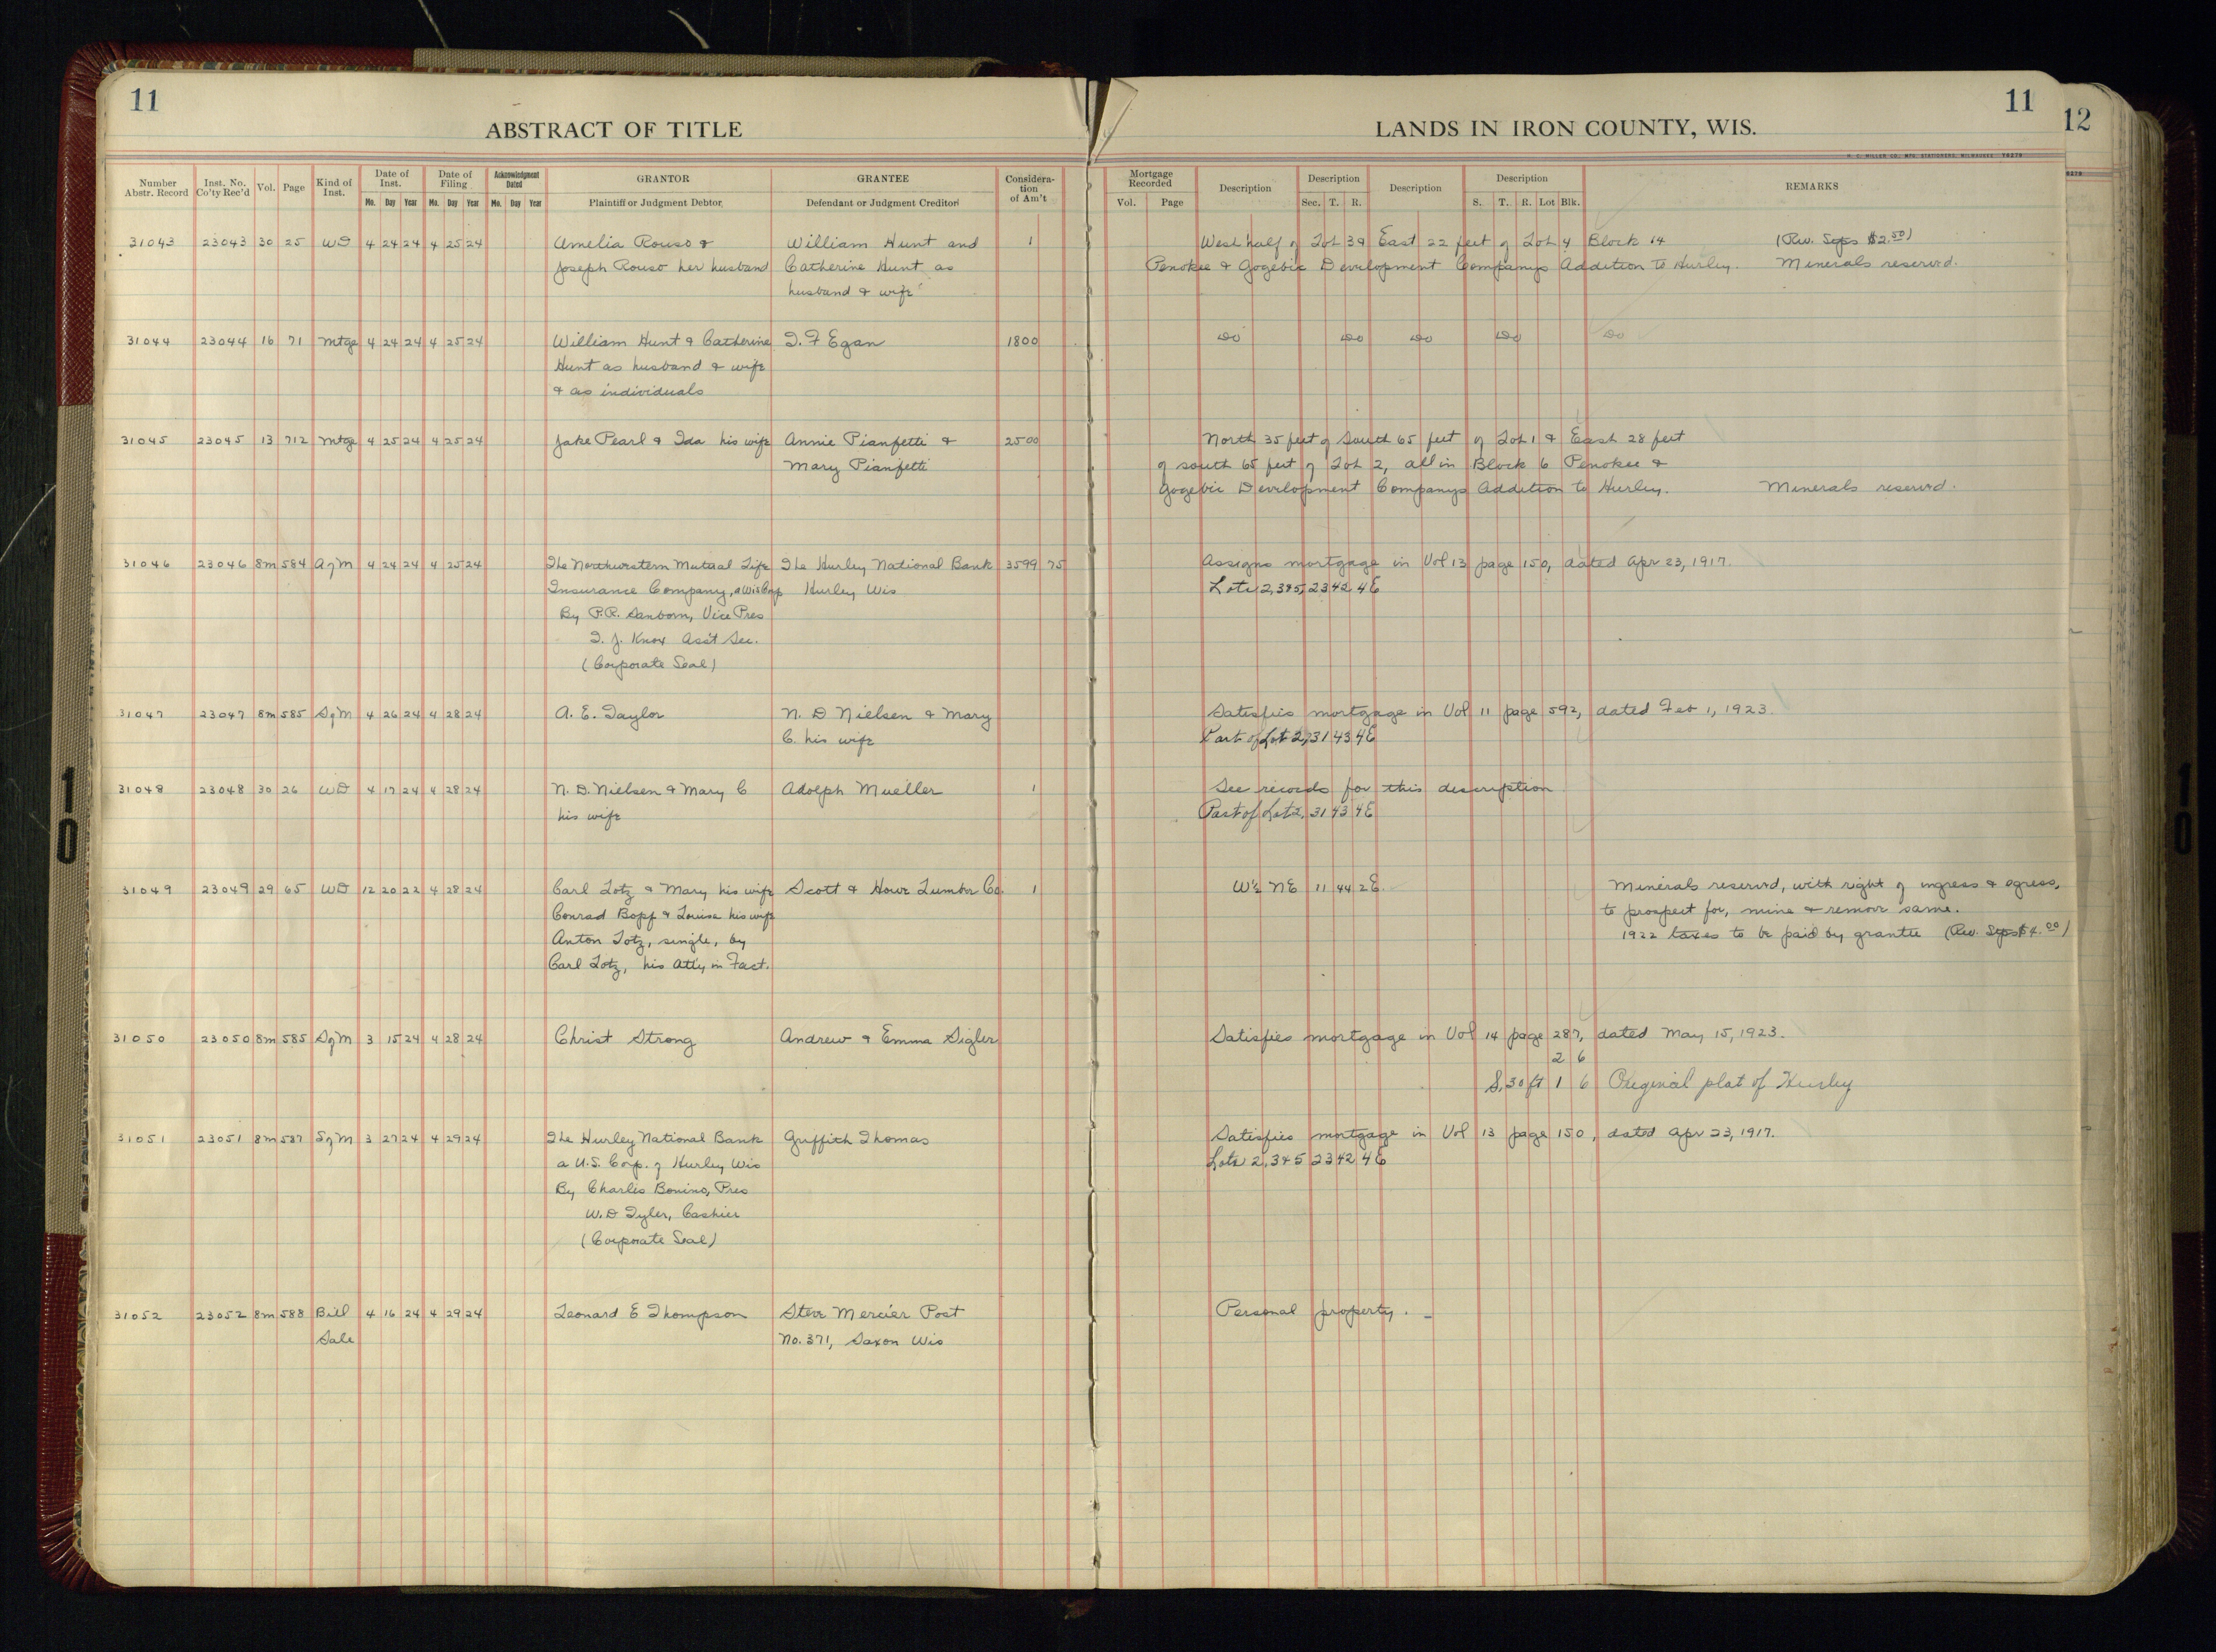 11
ABSTRACT OF TITLE
Number Abstr. Record Inst. No. Co'ty Rec'd Vol. Page Kind of Inst. Date of Inst. Mo. Day Year Date of Filing Mo. Day Year Acknowledgment Dated Mo. Day Year GRANTOR Plaintiff or Judgment Debtor GRANTEE Defendant or Judgment Creditor Consideration of Am't
31043 23043 30 25 WD 4 24 24 4 25 24 Amelia Rouso & William Hunt and 1
Joseph Rouso her husband Catherine Hunt as
husband & wife
31044 23044 16 71 Mtge 4 24 24 4 25 24 William Hunt & Catherine T. F Egan 1800
Hunt as husband & wife
& as individuals
31045 23045 13 712 Mtge 4 25 24 4 25 24 Jake Pearl & Ida his wife Annie Pianfetti & 2500
Mary Pianfetti
31046 23046 8m 584 AgM 4 24 24 4 25 24 The Northwestern Mutual Life The Hurley National Bank 3599 75
Insurance Company, a Wis Corp Hurley Wis
By P.R. Sanborn, Vice Pres
T. J. Knox Ass't Sec.
(Corporate Seal)
31047 23047 8m 585 SgM 4 26 24 4 28 24 A. E. Taylor N. D Nielsen & Mary
C. his wife
31048 23048 30 26 WD 4 17 24 4 28 24 N. D. Nielsen & Mary C Adolph Mueller 1
his wife
31049 23049 29 65 WD 12 20 22 4 28 24 Carl Lotz & Mary his wife Scott & Howe Lumber Co. 1
Conrad Bopf & Louise his wife
Anton Lotz, single, by
Carl Lotz, his Atty in Fact.
31050 23050 8m 585 SgM 3 15 24 4 28 24 Christ Strong Andrew & Emma Sigler
31051 23051 8m 587 SgM 3 27 24 4 29 24 The Hurley National Bank Griffith Thomas
a U.S. Corp. of Hurley Wis
By Charles Bonino, Pres
W. D Tyler, Cashier
(Corporate Seal)
31052 23052 8m 588 Bill 4 16 24 4 29 24 Leonard E Thompson Steve Mercier Post
Sale No. 371, Saxon Wis
11
12
LANDS IN IRON COUNTY, WIS.
H. C. MILLER CO., MFG. STATIONERS, MILWAUKEE
Mortgage Recorded Vol. Page Description Description Sec. T. R. Description Description S. T. R. Lot Blk. REMARKS
West half of Lot 3 & East 22 feet of Lot 4 Block 14 (Rev. Stps $2.50)
Penokee & Gogebic Development Companys Addition to Hurley. Minerals reserved.
Do Do Do Do Do
North 35 feet of South 65 feet of Lot 1 & East 28 feet
of south 65 feet of Lot 2, all in Block 6 Penokee &
Gogebic Development Companys Addition to Hurley. Minerals reserved.
Assigns mortgage in Vol 13 page 150, dated Apr 23, 1917.
Lots 2,3&5, 23 42 4E
Satisfies mortgage in Vol 11 page 592, dated Feb 1, 1923.
Part of Lot 2, 31 43 4E
See records for this description
Part of Lot 2, 31 43 4E
W½ NE 11 44 2E. Minerals reserved, with right of ingress & egress,
to prospect for, mine & remove same.
1922 taxes to be paid by grantee (Rev. Stps $4.00)
Satisfies mortgage in Vol 14 page 287, dated May 15, 1923.
2 6
S. 30 ft 1 6 Original plat of Hurley
Satisfies mortgage in Vol 13 page 150, dated Apr 23, 1917.
Lots 2, 3&5 23 42 4E
Personal property.
10
10